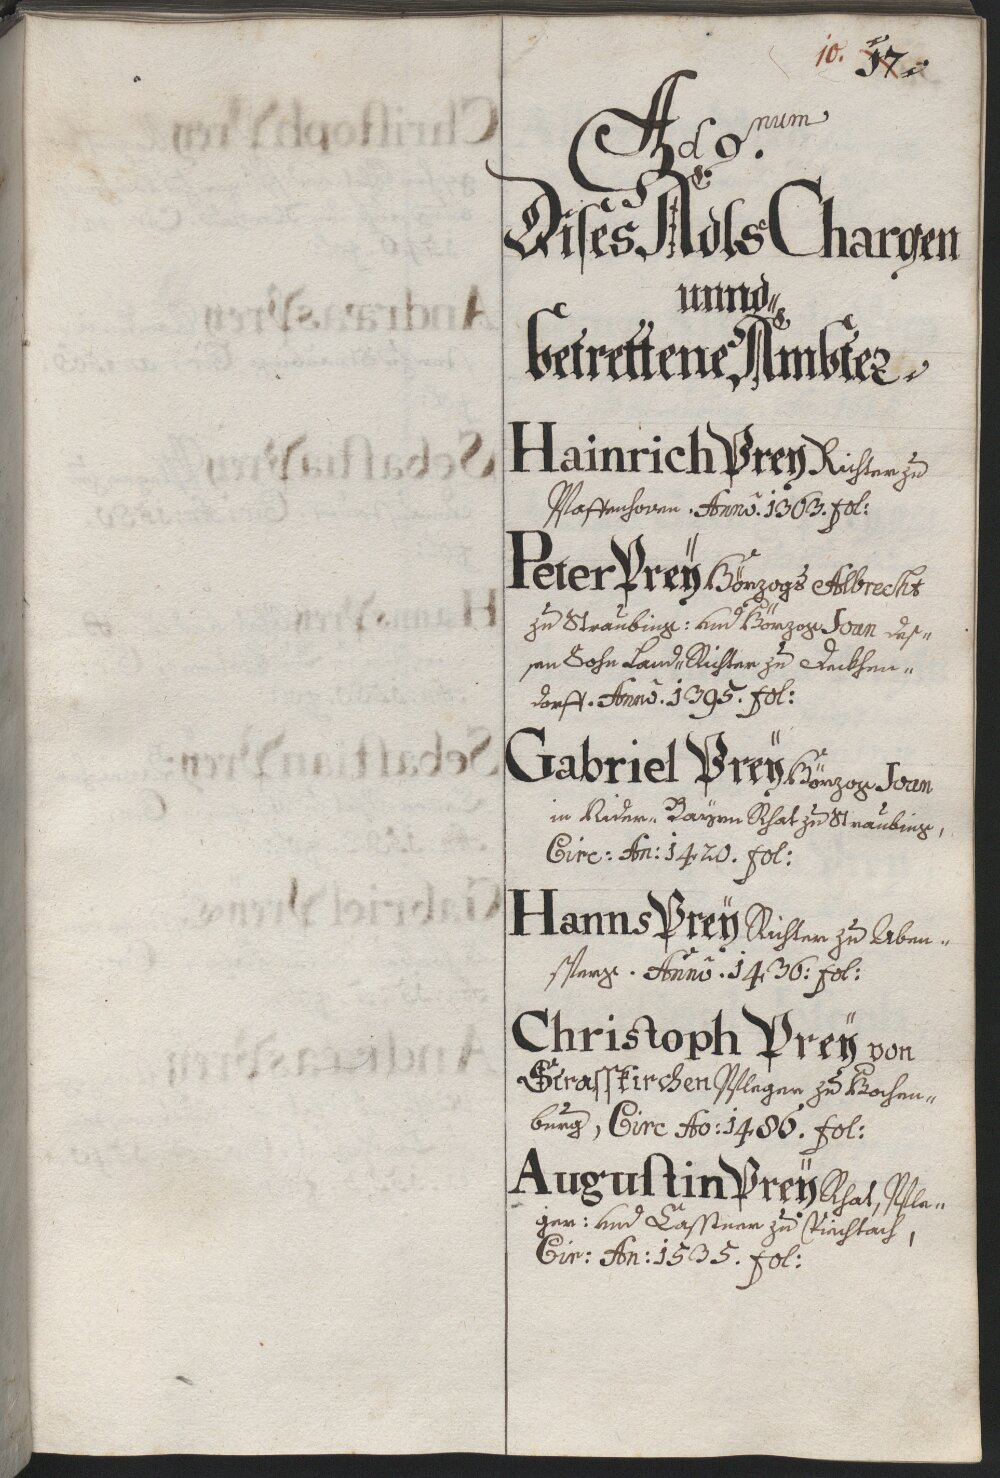 10. 17.
Ad 9.num
Dises Adls Chargen
unnd
betrettene Ämbter.
Hainrich Preÿ Richter zu
Pfaffenhoven. Anno. 1363. fol:
Peter Preÿ Hörzogs Albrecht
zu Straubing: und Hörzog Joan des„
sen Sohn Land„Richter zu Deckhen„
dorff. Anno. 1395. fol:
Gabriel Preÿ Hörzog Joan
in Nider„ Bayrn Rhat zu Straubing,
Circ: An: 1420. fol:
Hanns Preÿ Richter zu Aben„
sperg. Anno. 1436: fol:
Christoph Preÿ von
Strasskirchen Pfleger zu Kochen„
burg, Circ Ao: 1486. fol:
Augustin Preÿ Rhat, Pfle„
ger: und Casstner zu Viechtach,
Cir: An: 1535. fol: